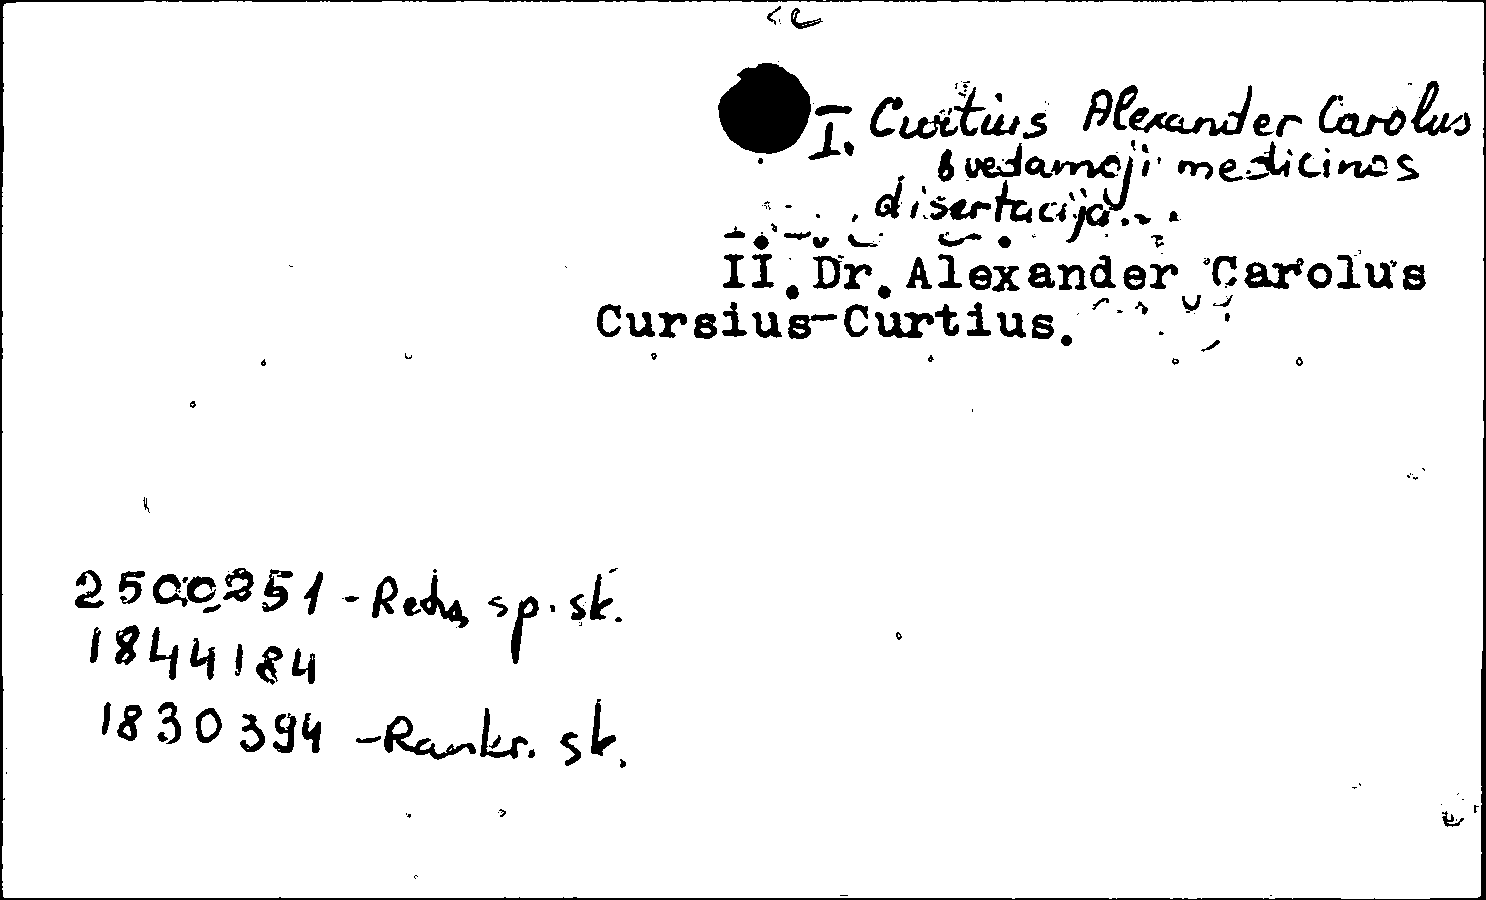 I. Curtius Alexander Carolus
Įvedamoji medicinos
disertacija...
II. Dr. Alexander Carolus
Cursius-Curtius.
2500251 - Retų sp. sk.
1844184
1830394 - Rankr. sk.